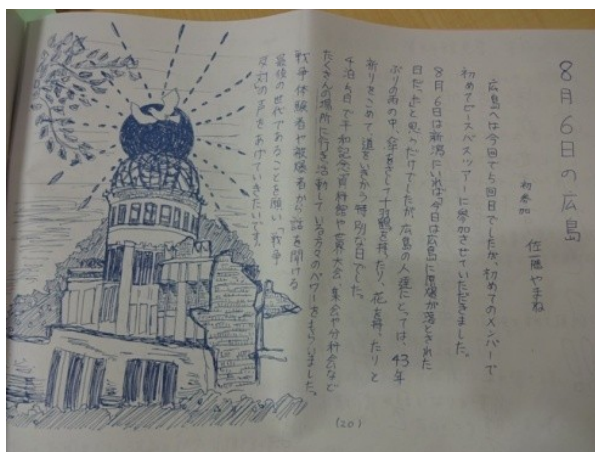 8月6日の広島
初参加 佐藤やまね
広島へは今回で5回目でしたが、初めてのメンバーで
初めてピースバスツアーに参加させていただきました。
8月6日は新潟にいれば「今日は広島に原爆が落とされた
日だ」と思っただけでしたが、広島の人達にとっては、43年
ぶりの雨の中、傘をさして千羽鶴を持ったり、花を持ったりと
祈りをこめて道をいきかう特別な日でした。
4泊6日で平和記念資料館や世界大会、集会や分科会など
たくさんの場所に行き活動している方々のパワーをもらいました。
戦争体験者や被爆者から話を聞ける
最後の世代であることを願い、「戦争
反対」の声をあげていきたいです。
(20)